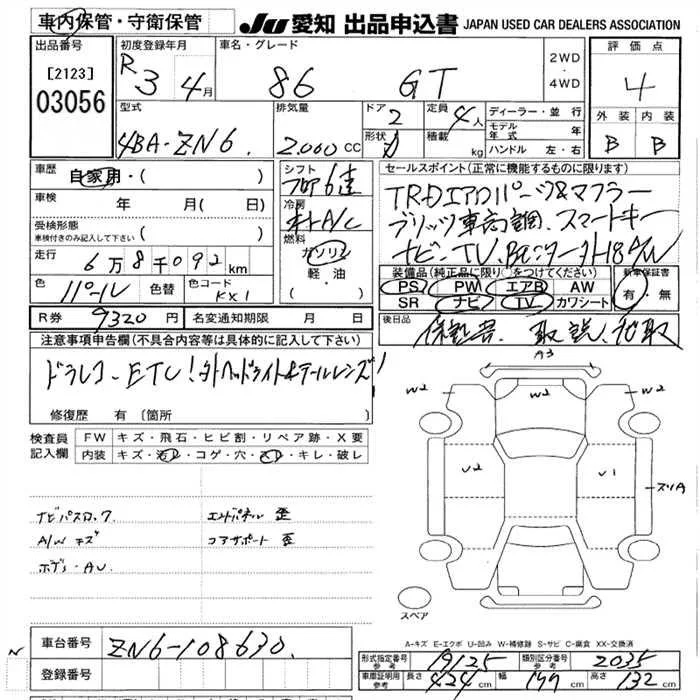 車内保管・守衛保管 JU 愛知 出品申込書 JAPAN USED CAR DEALERS ASSOCIATION
出品番号 初度登録年月 車名・グレード 評価点
[2123] R 3年 4月 86 GT 2WD・4WD 4
03056
型式 排気量 ドア 2 定員 4人 ディーラー・並行 外装 内装
4BA-ZN6 2,000 CC 形状 積載 kg モデル年式 年 B B
ハンドル 左・右
車歴 自家用・( ) シフト セールスポイント(正常に機能するものに限ります)
フロア6速 TRDエアロパーツ&マフラー
車検 年 月(日) 冷房 ブリッツ車高調、スマートキー
受検形態 A/C ナビ-TV、
車検付きのみ記入して下さい( ) 燃料
走行 6万8千092km ガソリン 装備品(純正品に限り○をつけてください) 新車保証書
軽油 PS PW エアB AW 有・無
色 パール 色替 色コード KX1 ( ) SR ナビ TV カワシート
R券 9320円 名変通知期限 月 日 後日品
保証書、取説、
注意事項申告欄(不具合内容等は具体的に記入して下さい)
ドラレコ-ETC!社外ヘッドライト&テールレンズ
修復歴 有( 箇所
検査員記入欄 FW キズ・飛石・ヒビ割・リペア跡・X要
内装 キズ・汚レ・コゲ・穴・スレ・キレ・破レ
ナビパスロック エンドパネル 歪
A/W キズ コアサポート 歪
ボディ・AU
A3
W2 W2 W2
U2 U1 スリA
スペア
A-キズ E-エクボ U-凹み W-補修跡 S-サビ C-腐食 XX-交換済
車台番号 ZN6-108630
登録番号
形式指定番号 参考 19125 類別区分番号 参考 2035
車庫証明用 参考 長さ 424cm 幅 177cm 高さ 132cm